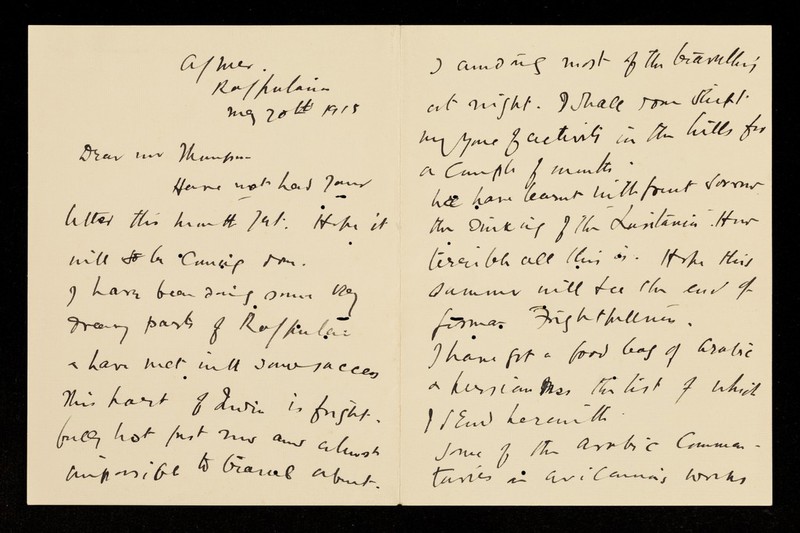 Ajmer.
Rajputana
May 20th 1915
Dear Mr Thompson
Have not had your
letter this month yet. Hope it
will be coming soon.
I have been doing some very
dreary parts of Rajputana
& have met with some success
This part of India is fright-
fully hot just now and almost
impossible to travel about.
I am doing most of the travelling
at night. I shall soon shift
my zone of activity in the hills for
a couple of months.
We have learnt with great sorrow
the sinking of the Lusitania. How
terrible all this is. Hope this
summer will see the end of
German Frightfulness.
I have got a good bag of Arabic
& Persian Mss the list of which
I send herewith.
Some of the Arabic Commen-
taries on Avicenna's works